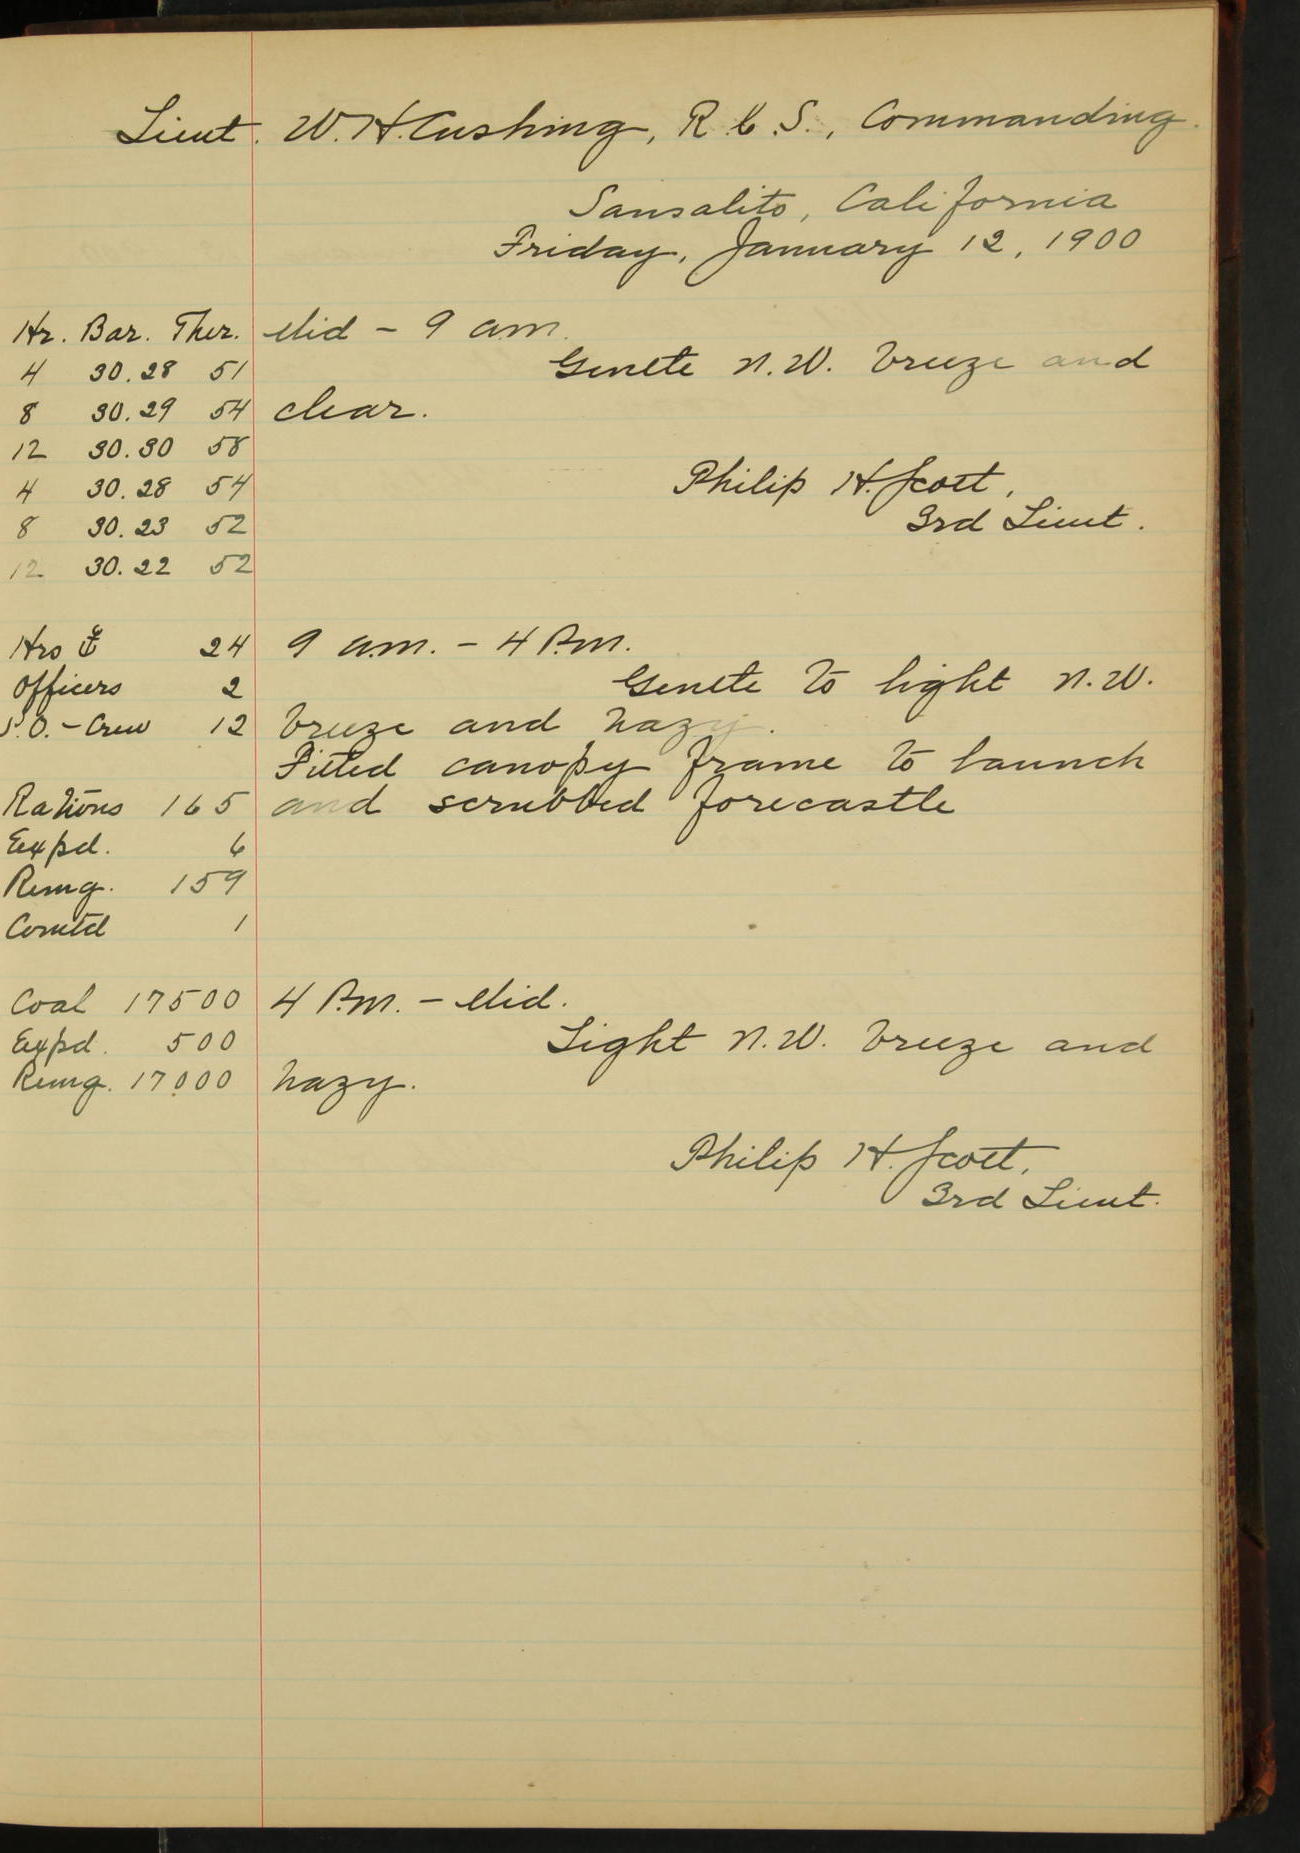 Lieut. W. H. Cushing, R. C. S., Commanding.
Sausalito, California
Friday, January 12, 1900
Hr. Bar. Ther. Mid - 9 am.
4 30.28 51 Gentle N.W. breeze and
8 30.29 54 clear.
12 30.30 58
4 30.28 54 Philip H. Scott,
8 30.23 52 3rd Lieut.
12 30.22 52
Hrs ⚓ 24 9 a.m. - 4 P.m.
Officers 2 Gentle to light N.W.
P.O. - Crew 12 breeze and hazy.
Fitted canopy frame to launch
Rations 165 and scrubbed forecastle
Expd. 6
Remg. 159
Comtd 1
Coal 17500 4 P.m. - Mid.
Expd. 500 Light N.W. breeze and
Remg. 17000 hazy.
Philip H. Scott,
3rd Lieut.